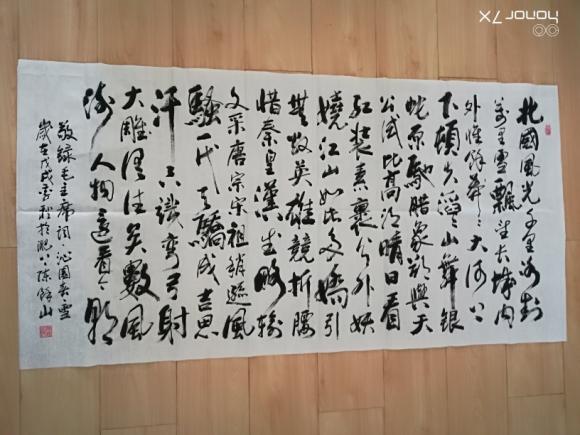 honor 7X
北國風光千里冰封
萬里雪飄望長城内
外惟餘莽〻大河上
下頓失滔〻山舞銀
蛇原馳臘象欲與天
公試比高須晴日看
紅裝素裹分外妖
嬈江山如此多嬌引
無數英雄競折腰
惜秦皇漢武略輸
文采唐宗宋祖稍遜風
騷一代天驕成吉思
汗只識彎弓射
大雕俱往矣數風
流人物還看今朝
敬錄毛主席詞·沁園春雪
歲在戊戌 於肥 陳 山